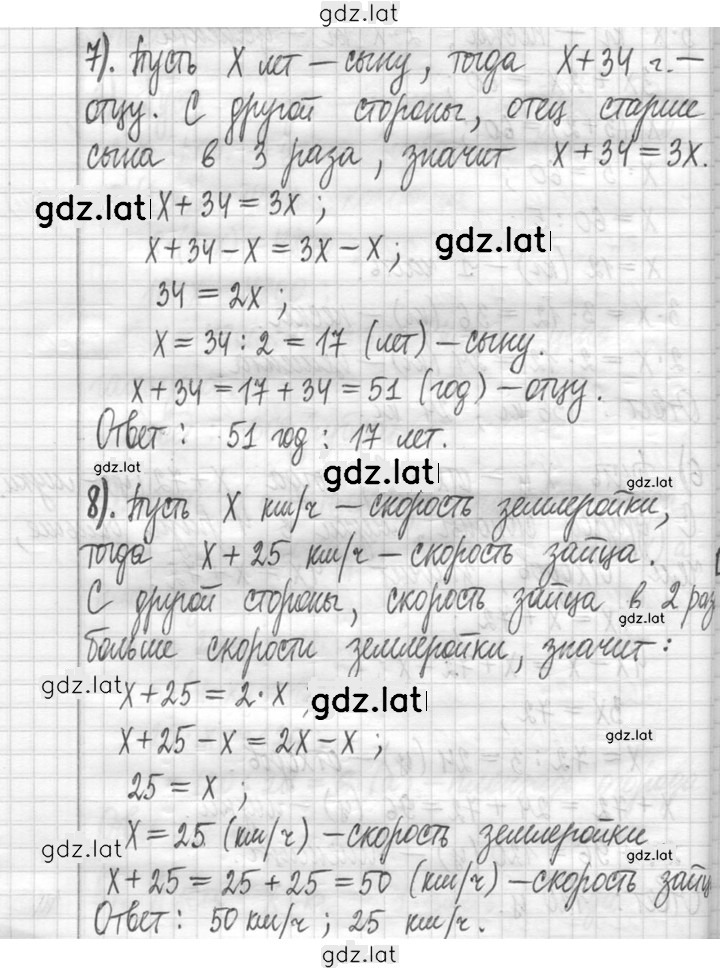 gdz.lat
7). Пусть x лет – сыну, тогда x+34 г. –
отцу. С другой стороны, отец старше
сына в 3 раза, значит x+34=3x.
gdz.lat x+34=3x;
x+34-x=3x-x; gdz.lat
34=2x;
x=34:2=17 (лет) – сыну.
x+34=17+34=51 (год) – отцу.
Ответ: 51 год: 17 лет.
gdz.lat gdz.lat gdz.lat
8). Пусть x км/ч – скорость землеройки,
тогда x+25 км/ч – скорость зайца.
С другой стороны, скорость зайца в 2 раз
gdz.lat
больше скорости землеройки, значит:
gdz.lat x+25=2·x; gdz.lat
x+25-x=2x-x; gdz.lat
25=x;
x=25 (км/ч) – скорость землеройки
gdz.lat gdz.lat
x+25=25+25=50 (км/ч) – скорость зайц
Ответ: 50 км/ч; 25 км/ч.
gdz.lat